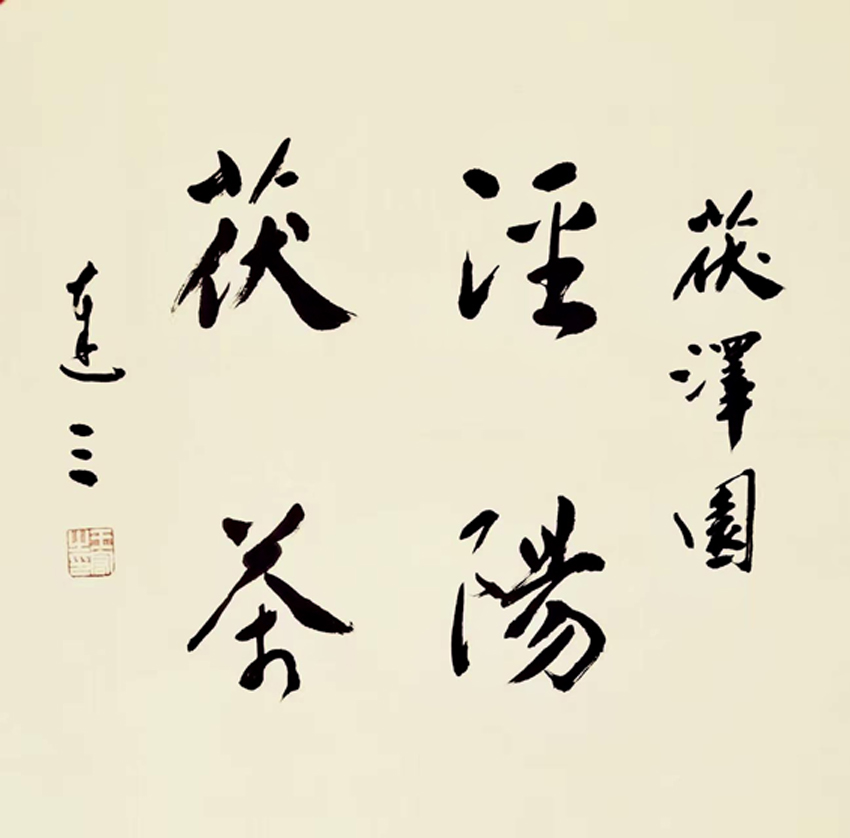 茯澤園
涇陽
茯茶
達三